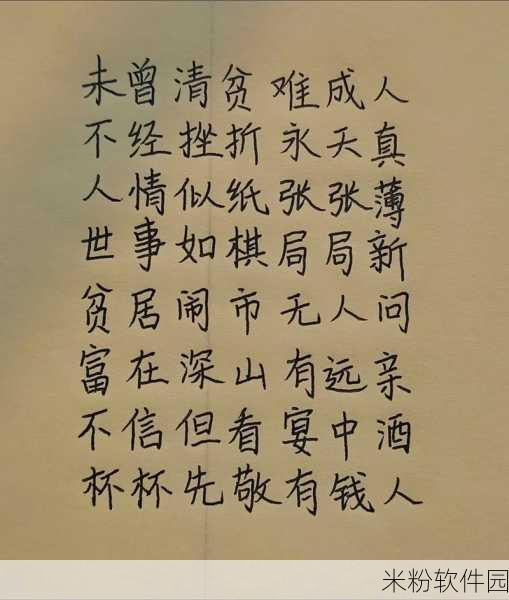 未曾清贫难成人
不经挫折永天真
人情似纸张张薄
世事如棋局局新
贫居闹市无人问
富在深山有远亲
不信但看宴中酒
杯杯先敬有钱人
米粉软件园